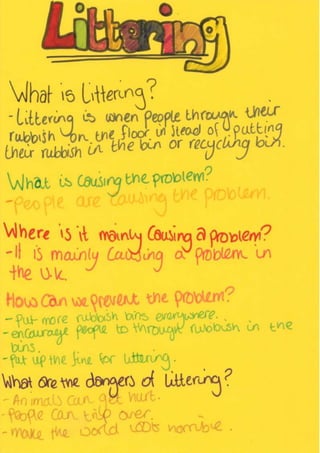 Littering
What is Littering?
- Littering is when people through their
rubbish on the floor in stead of putting
their rubbish in the bin or recycling bin.
What is causing the problem?
- People are causing the problem.
Where is it mainly causing a problem?
- It is mainly causing a problem in
the U.K.
How can we prevent the problem?
- Put more rubbish bins everywhere.
- encourage people to through rubbish in the
bins.
- Put up the fine for littering.
What are the dangers of littering?
- Animals can get hurt.
- People can trip over.
- make the world look horrible.